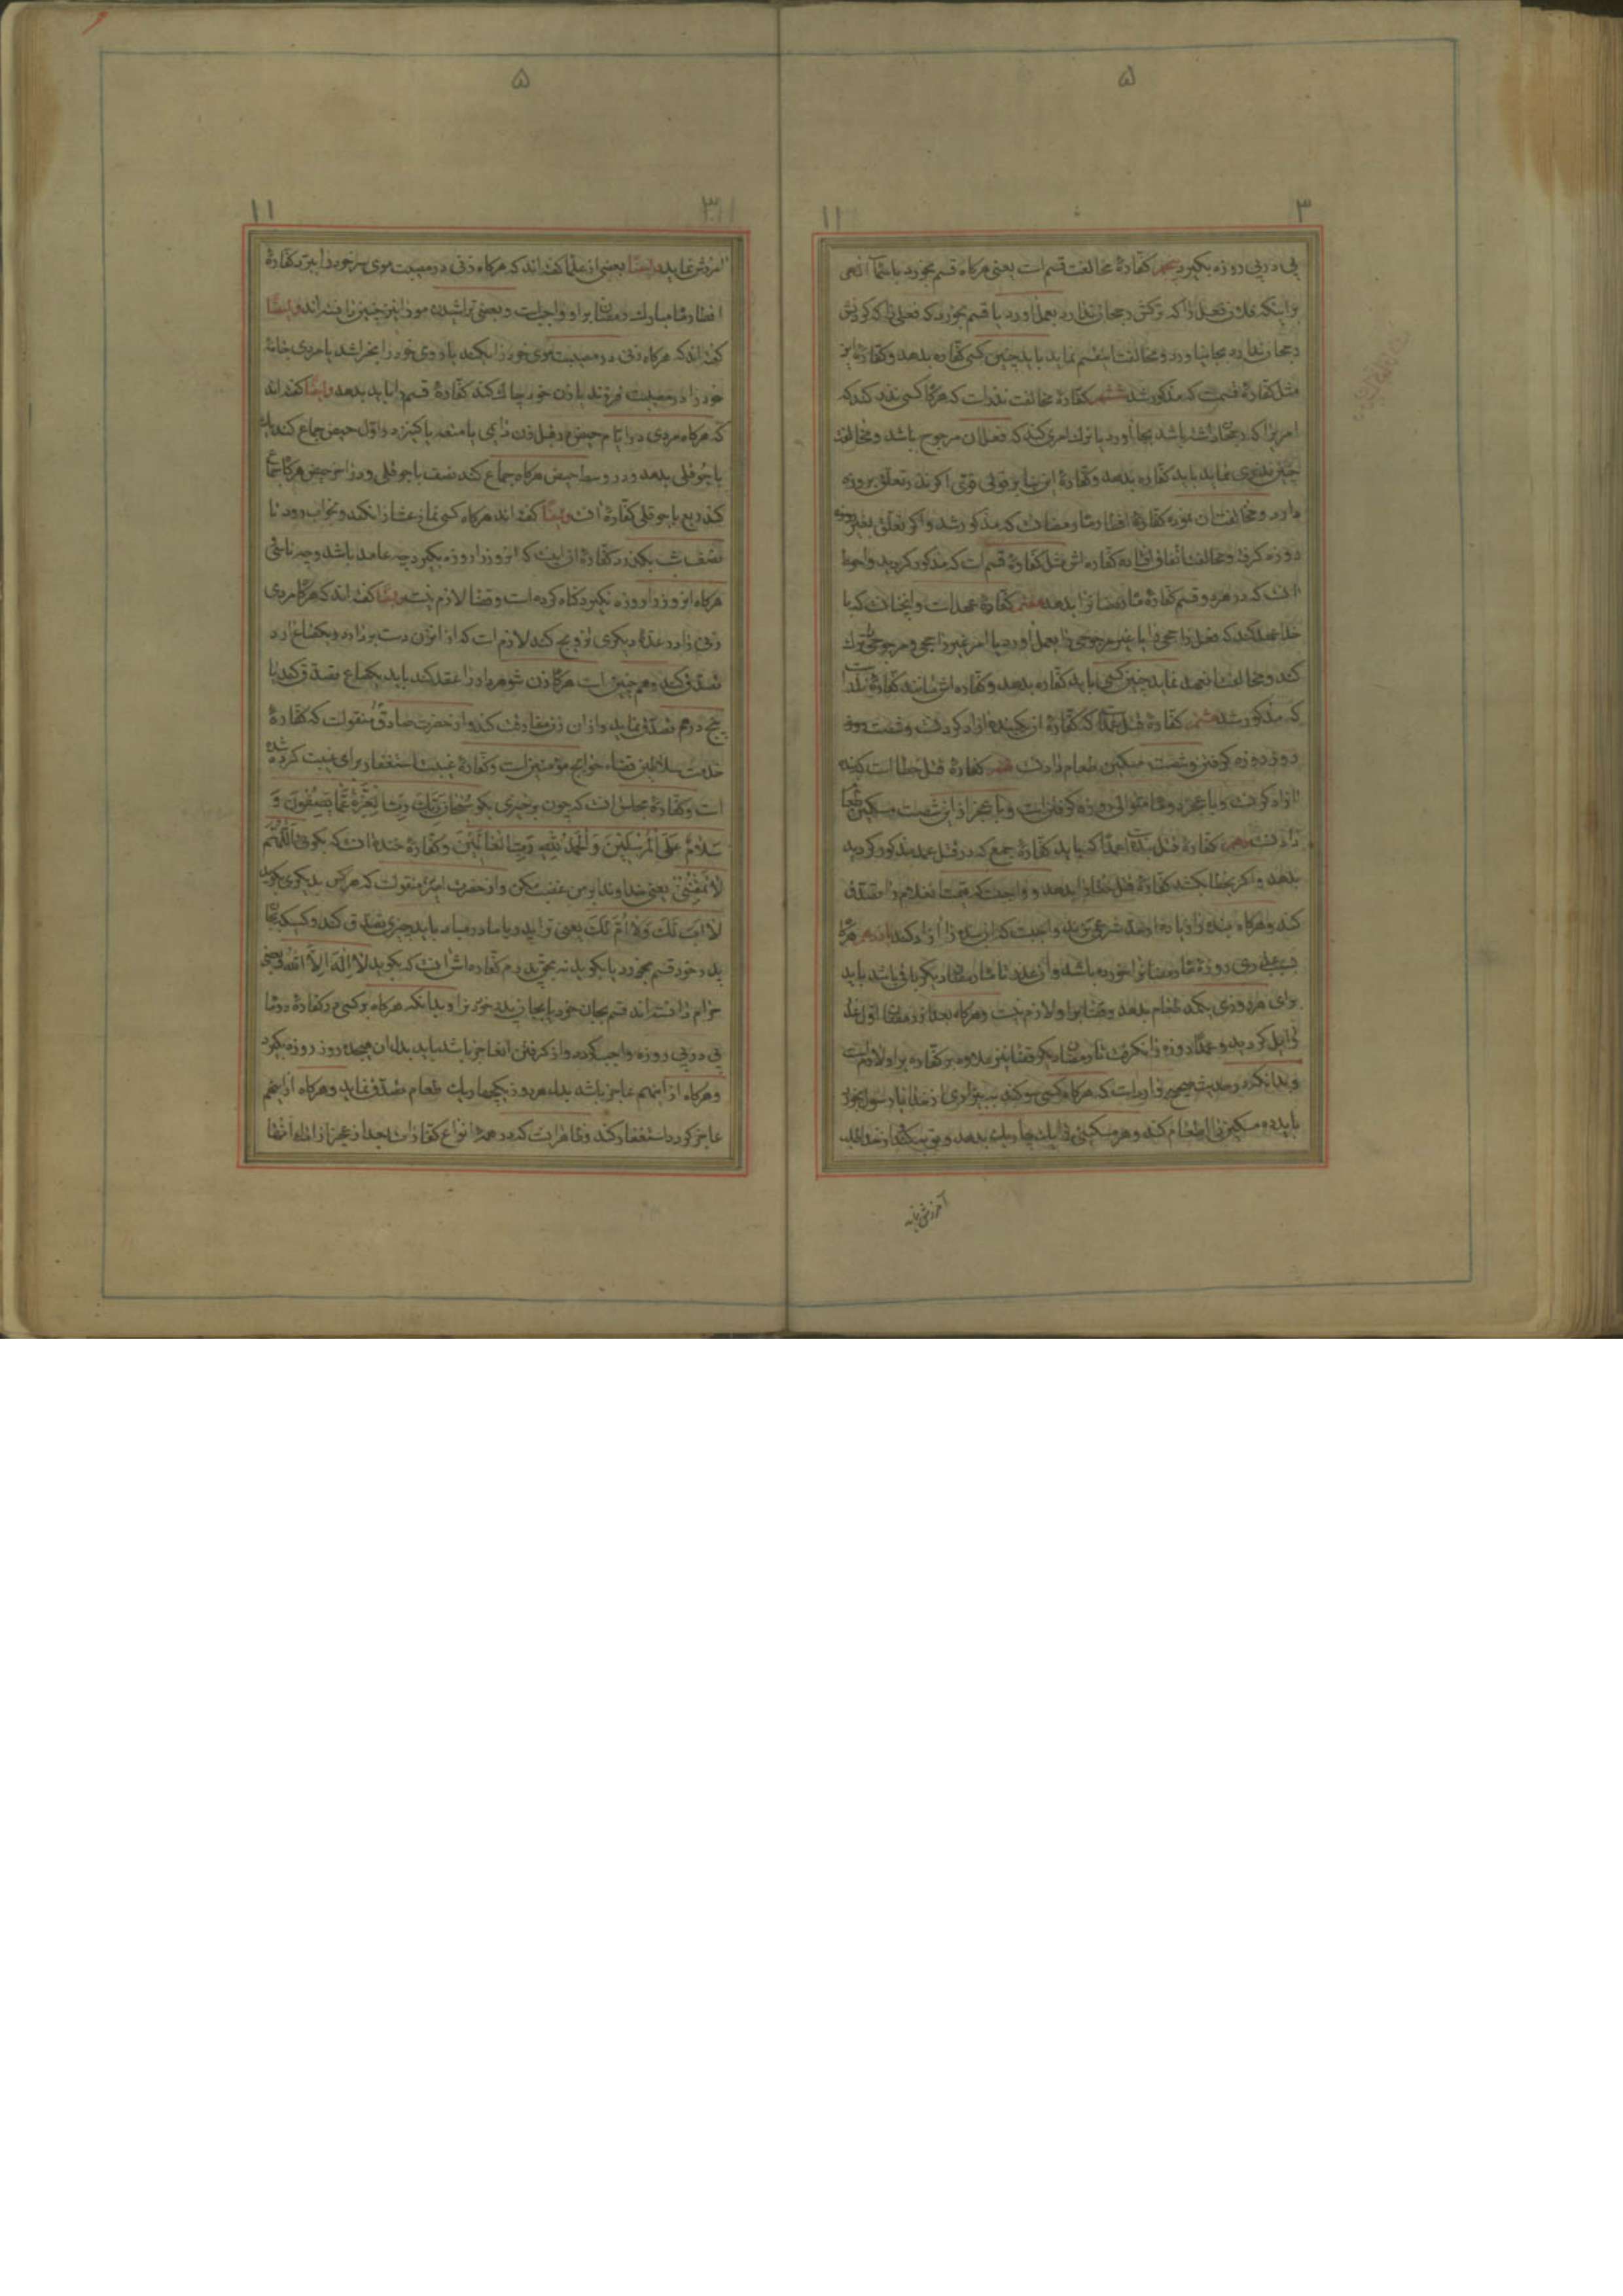 ۵
۳ ۱۱
پی در پی روزه بگیرد پنجم کفارهٔ مخالفت قسم است یعنی هرگاه قسم بخورد باسماء الهی
بر اینکه فعل را که ترکش رجحان ندارد بعمل آورد یا قسم بخورد که فعلی را که کردنش
رجحان ندارد بجا نیاورد و مخالفت قسم نماید باید چنین کسی کفاره بدهد و کفارهٔ این
مثل کفارهٔ که مذکور شد ششم کفارهٔ مخالفت نذر است که هرگاه کسی نذر کند که
امریرا که رجحان داشته باشد بجا آورد یا ترک امری کند که فعل آن مرجوح باشد و مخالفت
چنین نذری نماید باید کفاره بدهد و کفارهٔ این بنا بر قولی قوی اگر نذر تعلق بروزه
دارد و مخالفت آن نموده کفارهٔ افطار ماه رمضان که مذکور شد و اگر تعلق بغیر روزه
روزه گرفته و مخالفت اتفاق افتاده کفاره‌اش مثل کفارهٔ قسم است که مذکور گردید و احوط
آنست که در هر دو قسم کفارهٔ ماه رمضانرا بدهد هفتم کفارهٔ عهد است و آن چنانست که با
خدا عهد کند که فعل راجحی را یا غیر مرجوحی را بعمل آورد یا امر غیر راجحی و مرجوحی را ترک
کند و مخالفت عهد نماید چنین کسی باید کفاره بدهد و کفاره‌اش مانند کفارهٔ نذر است
که مذکور شد هشتم کفارهٔ قتل عمد است که کفارهٔ آن یکبنده آزاد کردنست و شصت روز
روزه گرفتن و شصت مسکین طعام دادنست نهم کفارهٔ قتل خطا است که بنده
آزاد کردنست و با عجز دو ماه متوالی روزه گرفتن است و با عجز از این شصت مسکین طعام
دادنست دهم کفارهٔ قتل بنده است عمداً که باید کفارهٔ جمع که در قتل عمد مذکور گردید
بدهد و اگر بخطا بکشد کفارهٔ قتل خطا را بدهد و واجبست که قیمت آن غلام را تصدق
کند و هرگاه بنده را زیاده از حد شرعی بزند واجبست که آن بنده را آزاد کند یازدهم هرگاه
بسبب عذری روزهٔ ماه رمضانرا خورده باشد و آن عذر تا ماه رمضان دیگر باقی باشد باید
برای هر روزی یکمد طعام بدهد و قضا بر او لازم نیست و هرگاه بعد از رمضان اول عذر
زایل گردید و عمداً روزه را نگرفت تا رمضان دیگر قضا نیز علاوه بر کفاره بر او لازمست
و بدانکه در حدیث صحیح وارد است که هرگاه کسی سوگند به بیزاری از خدا یا رسول بخورد
باید ده مسکین را اطعام کند و هر مسکینی را یک چاریک بدهد و توبه کند و از خدا طلب
آمرزش نماید
۵
۳ ۱۱
آمرزش نماید و ایضاً بعضی از علما گفته‌اند که هرگاه زنی در مصیبت موی سر خود را ببرد کفارهٔ
افطار ماه مبارک رمضان بر او واجبست و بعضی تراشیدن مو را نیز چنین دانسته‌اند و ایضاً
گفته‌اند که هرگاه زنی در مصیبت موی خود را بکند یا روی خود را بخراشد یا مردی جامهٔ
خود را در مصیبت فرزند یا زن خود چاک کند کفارهٔ قسم را باید بدهد و ایضاً گفته‌اند
که هرگاه مردی در ایام حیض در قبل زن دایمی یا متعه یا کنیز در اول حیض جماع کند یک
باجوقلی بدهد و در وسط حیض هرگاه جماع کند نصف باجوقلی و در آخر حیض هرگاه جماع
کند ربع باجوقلی کفارهٔ آنست و ایضاً گفته‌اند هرگاه کسی نماز عشا را نکند و بخواب رود تا
نصف شب بگذرد کفارهٔ آن اینست که آنروز را روزه بگیرد چه عامد باشد و چه ناسی
هرگاه آنروز را روزه نگیرد گناه کرده است و قضا لازم نیست و ایضاً گفته‌اند که هرگاه مردی
زنی را در عدهٔ دیگری تزویج کند لازم است که از آن زن دست بردارد و یکصاع آرد
تصدق کند و همچنین است هرگاه زن شوهردار را عقد کند باید یکصاع تصدق کند یا
پنج درهم تصدق نماید و از آن زن مفارقت کند و از حضرت صادق منقولست که کفارهٔ
خدمت سلاطین قضاء حوائج مؤمنین است و کفارهٔ غیبت استغفار برای غیبت کرده شده
است و کفارهٔ مجلس آنست که چون برخیزی بگو سُبْحَانَ رَبِّكَ رَبِّ الْعِزَّةِ عَمَّا يَصِفُونَ وَ
سَلَامٌ عَلَى الْمُرْسَلِينَ وَالْحَمْدُ لِلَّهِ رَبِّ الْعَالَمِينَ و کفارهٔ خنده آنست که بگوئی اَللّٰهُمَّ
لَا تَمْقُتْنِي یعنی خداوندا بر من غضب مکن و از حضرت امیر منقولست که هر کس بدیگری بگوید
لَا أَبَ لَكَ وَلَا أُمَّ لَكَ یعنی ترا پدر یا مادر مباد باید چیزی تصدق کند و کسیکه بجان
پدر خود قسم بخورد یا بگوید نه بحق پدرم کفاره‌اش آنست که بگوید لَا إِلَهَ إِلَّا اللَّهُ و بعضی
حرام دانسته‌اند قسم بجان خود یا بجان پدر خود را و بدانکه هرگاه بر کسی در کفاره دو ماه
پی در پی روزه واجب گردد و از گرفتن آن عاجز باشد باید بدل آن هیجده روز روزه بگیرد
و هرگاه از آنهم عاجز باشد بدل هر روز یکچهاریک طعام تصدق نماید و هرگاه از اینهم
عاجز گردد استغفار کند و ظاهر اینست که در همهٔ انواع کفارات بعد از عجز از افراد آنها